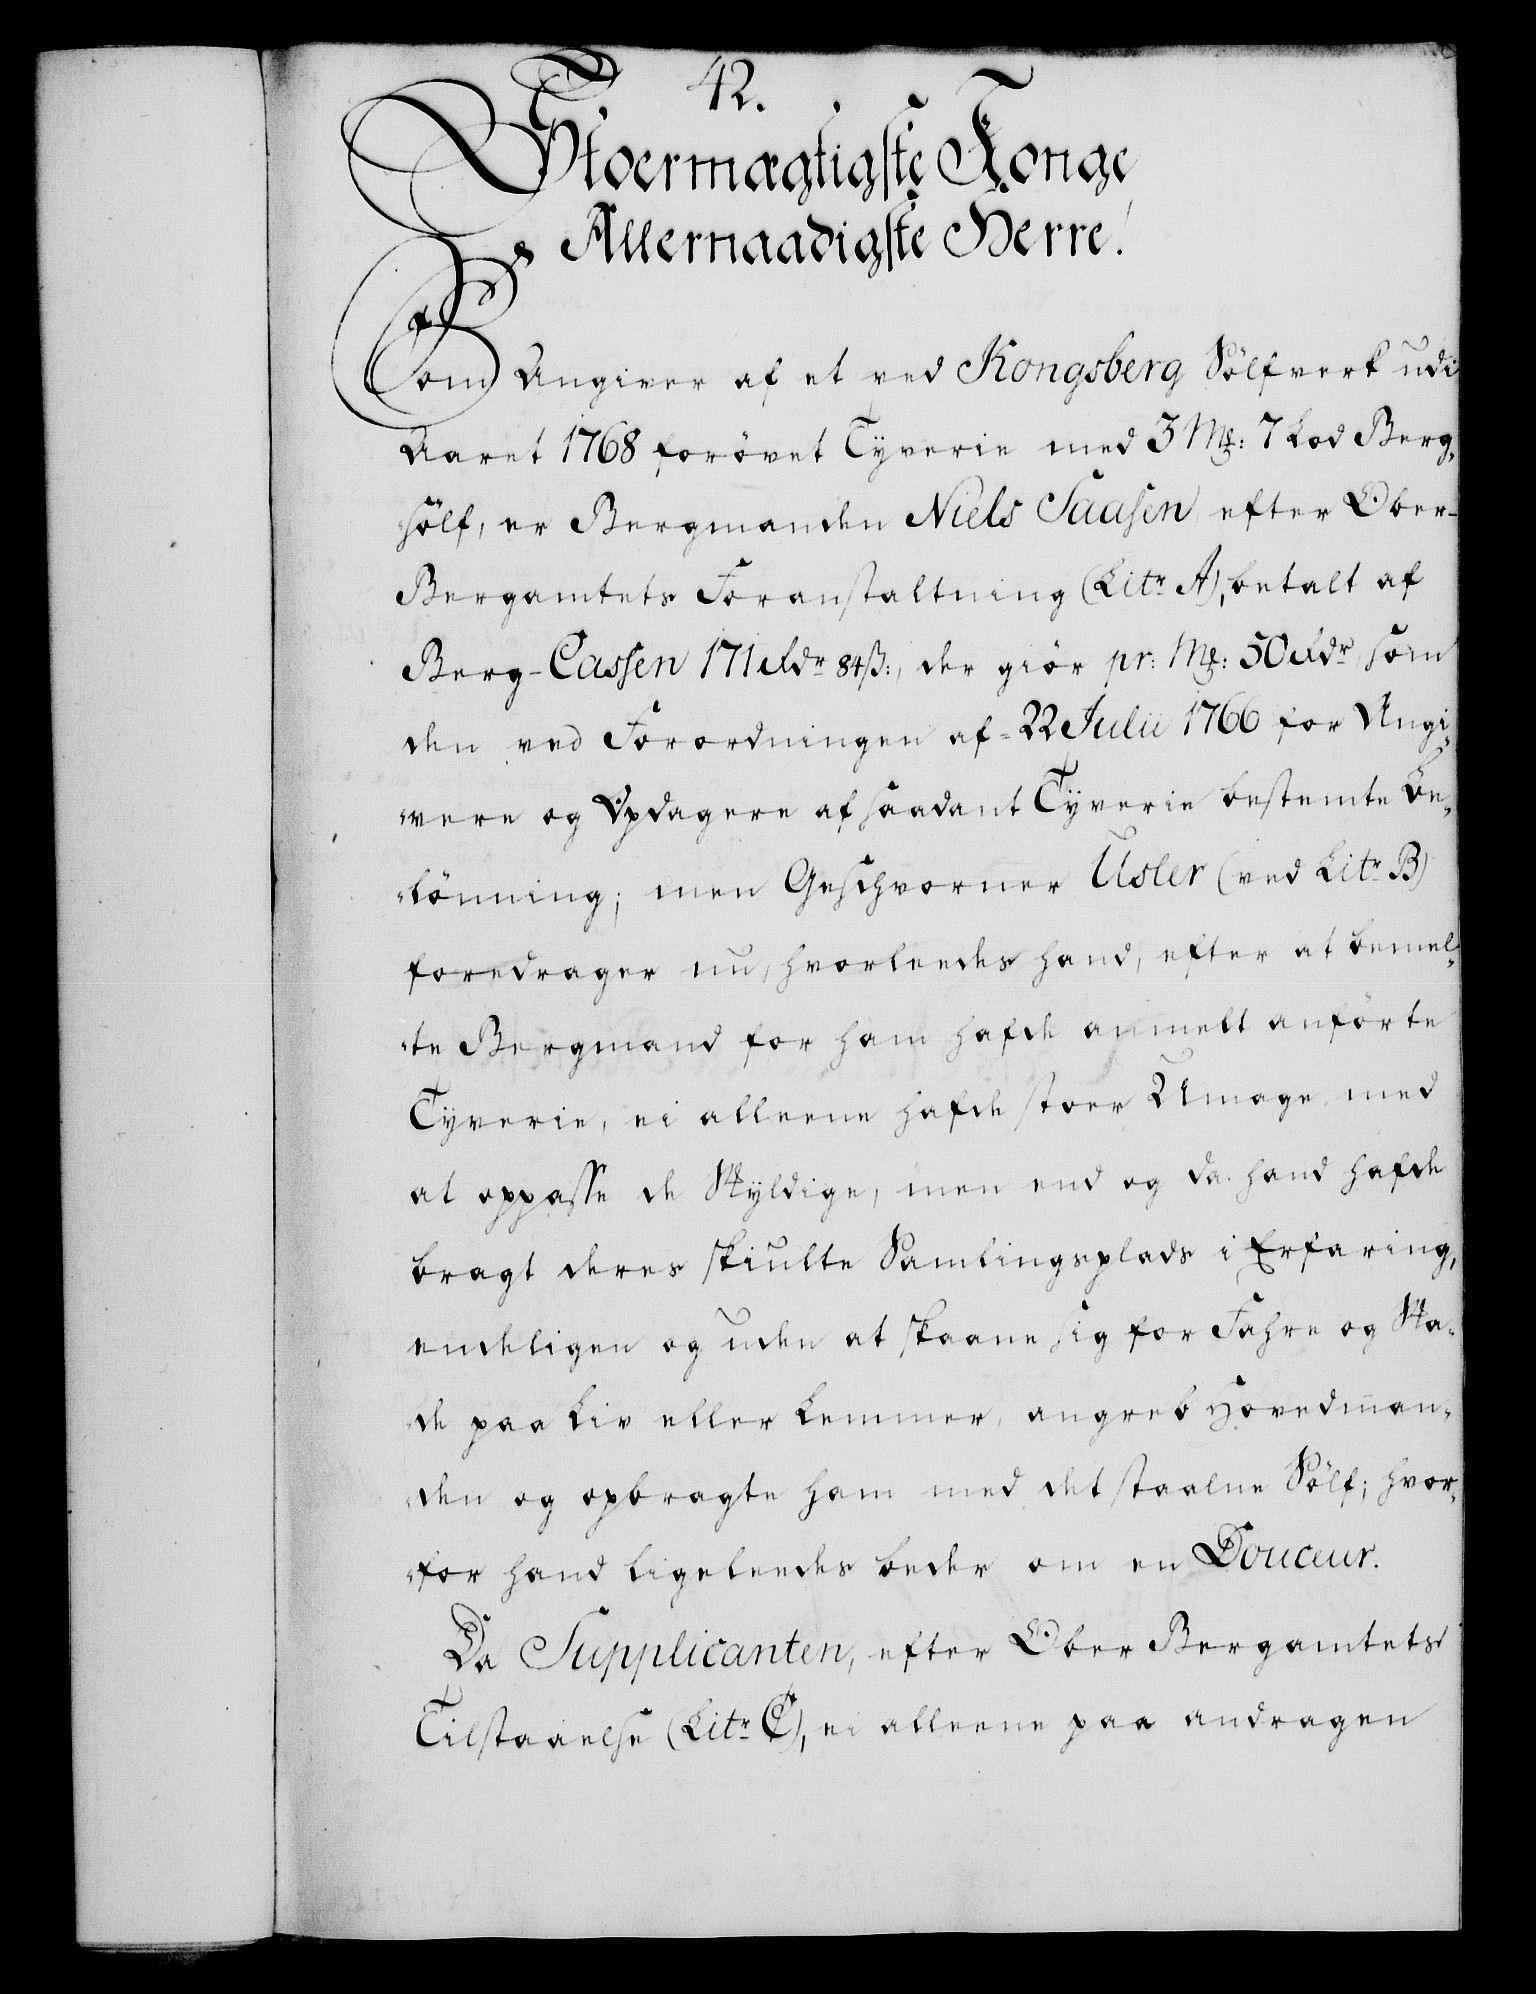 42.
Stoermægtigste Konge
Allernaadigste Herre!
Som Angiver af et ved Kongsberg Sölfverk udi
Aaret 1768 forövet Tyverie med 3 Mk: 7 Lod Berg-
sölf, er Bergmanden Niels Saasen efter Ober-
Bergamtets Foranstaltning (Litr A), betalt af
Berg-Cassen 171 Rdr 84 ß:, der giör pr: Mk: 50 Rdr, som
den ved Forordningen af 22 Julii 1766 for Angi-
vere og Opdagere af saadant Tyverie bestemte Be-
lönning; men Geschvorner Usler (ved Litr B)
foredrager nu, hvorleedes hand, efter at bemel-
te Bergmand for ham hafde anmelt anförte
Tyverie, ei alleene hafde stoer Umage med
at oppasse de Skyldige, men end og da hand hafde
bragt deres skiulte Samlingsplads i Erfaring,
endeligen og uden at skaane sig for Fahre og Ska-
de paa Liv eller Lemmer, angreb Hovedman-
den og opbragte ham med det staalne Sölf; hvor-
for hand ligeleedes beder om en Douceur.
Da Supplicanten, efter Ober Bergamtets
Tilstaaelse (Litr C), ei alleene paa andragen